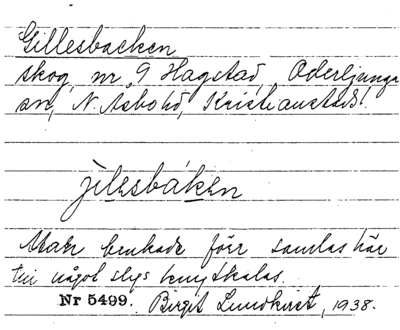 Gillesbacken
skog, nr 9 Hagstad, Oderljunga
sn, N. Åsbo hd, Kristianstads l.
jilesbáken
Man brukade förr samlas här
till något slags knytkalas.
Nr 5499. Birgit Lundkvist, 1938.